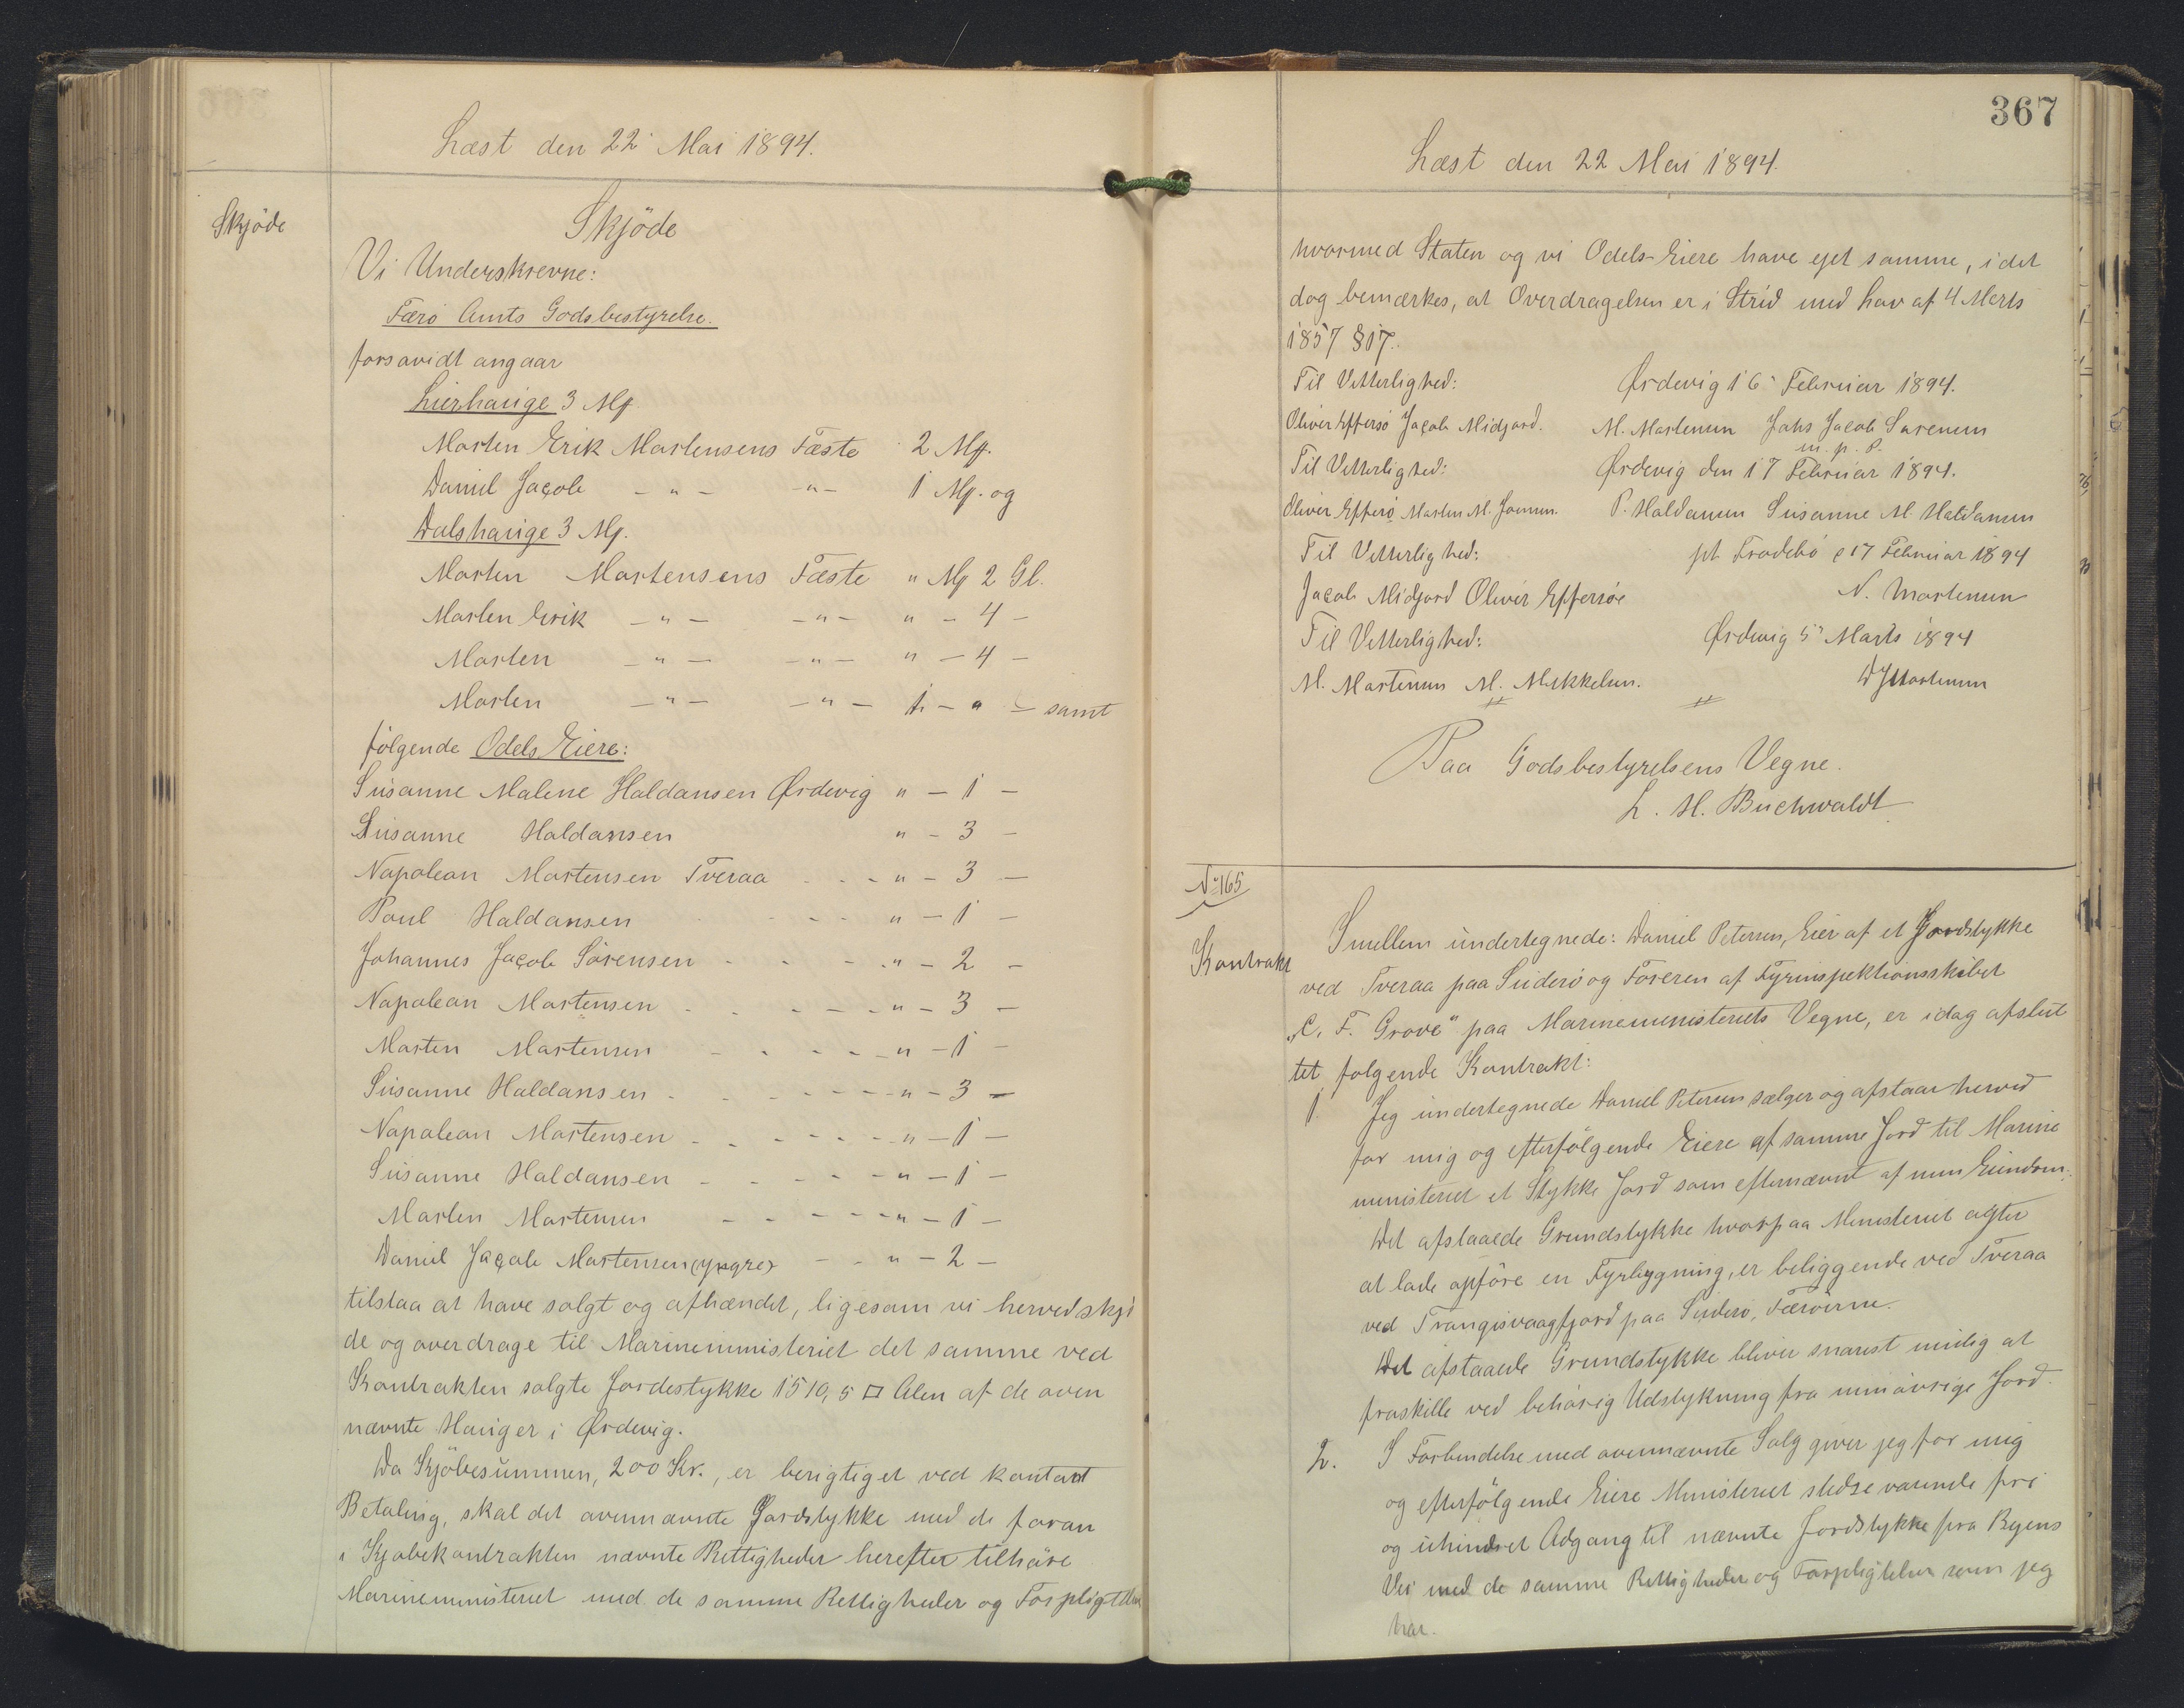 Læst den 22 Mai 1894.
Skjöde
Skjöde
Vi Underskrevne:
Færö Amts Godsbestyrelse.
forsavidt angaar
Lierhauge 3 Mf.
Morten Erik Mortensens Fæste 2 Mf.
Daniel Jacob - " - - " - 1 Mf. og
Dalshauge 3 Mf.
Morten Mortensens Fæste " Mf 2 Gl.
Morten Erik - " - - " - " - 4 -
Morten - " - - " - " - 4 -
Morten - " - - " - 1 - " - samt
følgende Odels Eiere:
Susanne Malene Haldansen Ørdevig " - 1 -
Susanne Haldansen " - 3 -
Napolean Mortensen Tveraa - - - " - 3 -
Poul Haldansen - - - " - 1 -
Johannes Jacob Sörensen - - - " - 2 -
Napolean Mortensen - - - " - 3 -
Morten Mortensen - - - - " - 1 -
Susanne Haldansen - - - - " - 3 -
Napolean Mortensen - - - - " - 1 -
Susanne Haldansen - - - - " - 1 -
Morten Mortensen - - - - " - 1 -
Daniel Jacob Mortensen (yngre) - - " - 2 -
tilstaa at have solgt og afhændet, ligesom vi herved skjö
de og overdrage til Marineministeriet det samme ved
Kontrakten solgte Jordestykke 1510,5 □ Alen af de oven
nævnte Hauger i Ørdevig.
Da Kjöbesummen, 200 Kr., er berigtiget ved kontant
Betaling, skal det ovennævnte Jordstykke med de foran
i Kjöbekontrakten nævnte Rettigheder herefter tilhöre
Marineministeriet med de samme Rettigheder og Forpligtelser
367
Læst den 22 Mai 1894.
hvormed Staten og vi Odels-Eiere have ejet samme, idet
dog bemærkes, at Overdragelsen er i Strid med Lov af 4 Marts
1857 § 17.
Til Vitterlighed: Ørdevig 16 Februar 1894.
Oliver Effersö Jacob Midjord. M. Mortensen Johs Jacob Sørensen
m. p. P.
Til Vitterlighed: Ørdevig den 17 Februar 1894.
Oliver Effersö Morten M. P. Haldansen Susanne M. Haldansen
Til Vitterlighed: pt. Frodebö d 17 Februar 1894
Jacob Midjord Oliver Effersöe N. Mortensen
Til Vitterlighed: Ørdevig 5 Marts 1894
M. Mortensen M. Mikkelsen. D J Mortensen
Paa Godsbestyrelsens Vegne.
L. H. Buchwaldt
No 165
Kontrakt
Imellem undertegnede: Daniel Petersen, Eier af et Jordstykke
ved Tveraa paa Suderö og Föreren af Fyrinspektionsskibet
"C. F. Grove" paa Marineministeriets Vegne, er idag afslut
tet følgende Kontrakt:
1. Jeg undertegnede Daniel Petersen sælger og afstaar herved
for mig og efterfölgende Eiere af samme Jord til Marine
ministeriet et Stykke Jord som efternævnt af min Eiendom.
Det afstaaede Grundstykke hvorpaa Ministeriet agter
at lade opföre en Fyrbygning, er beliggende ved Tveraa
ved Trangisvaagfjord paa Suderö, Færöerne.
Det afstaaede Grundstykke bliver snarest mulig at
fraskille ved behörig Udstykning fra min övrige Jord.
2. I Forbindelse med ovennævnte Salg giver jeg for mig
og efterfölgende Eiere Ministeriet stedse varende fri
og uhindret Adgang til nævnte Jordstykke fra Byens
Vei med de samme Rettigheder og Forpligtelser som jeg
har.